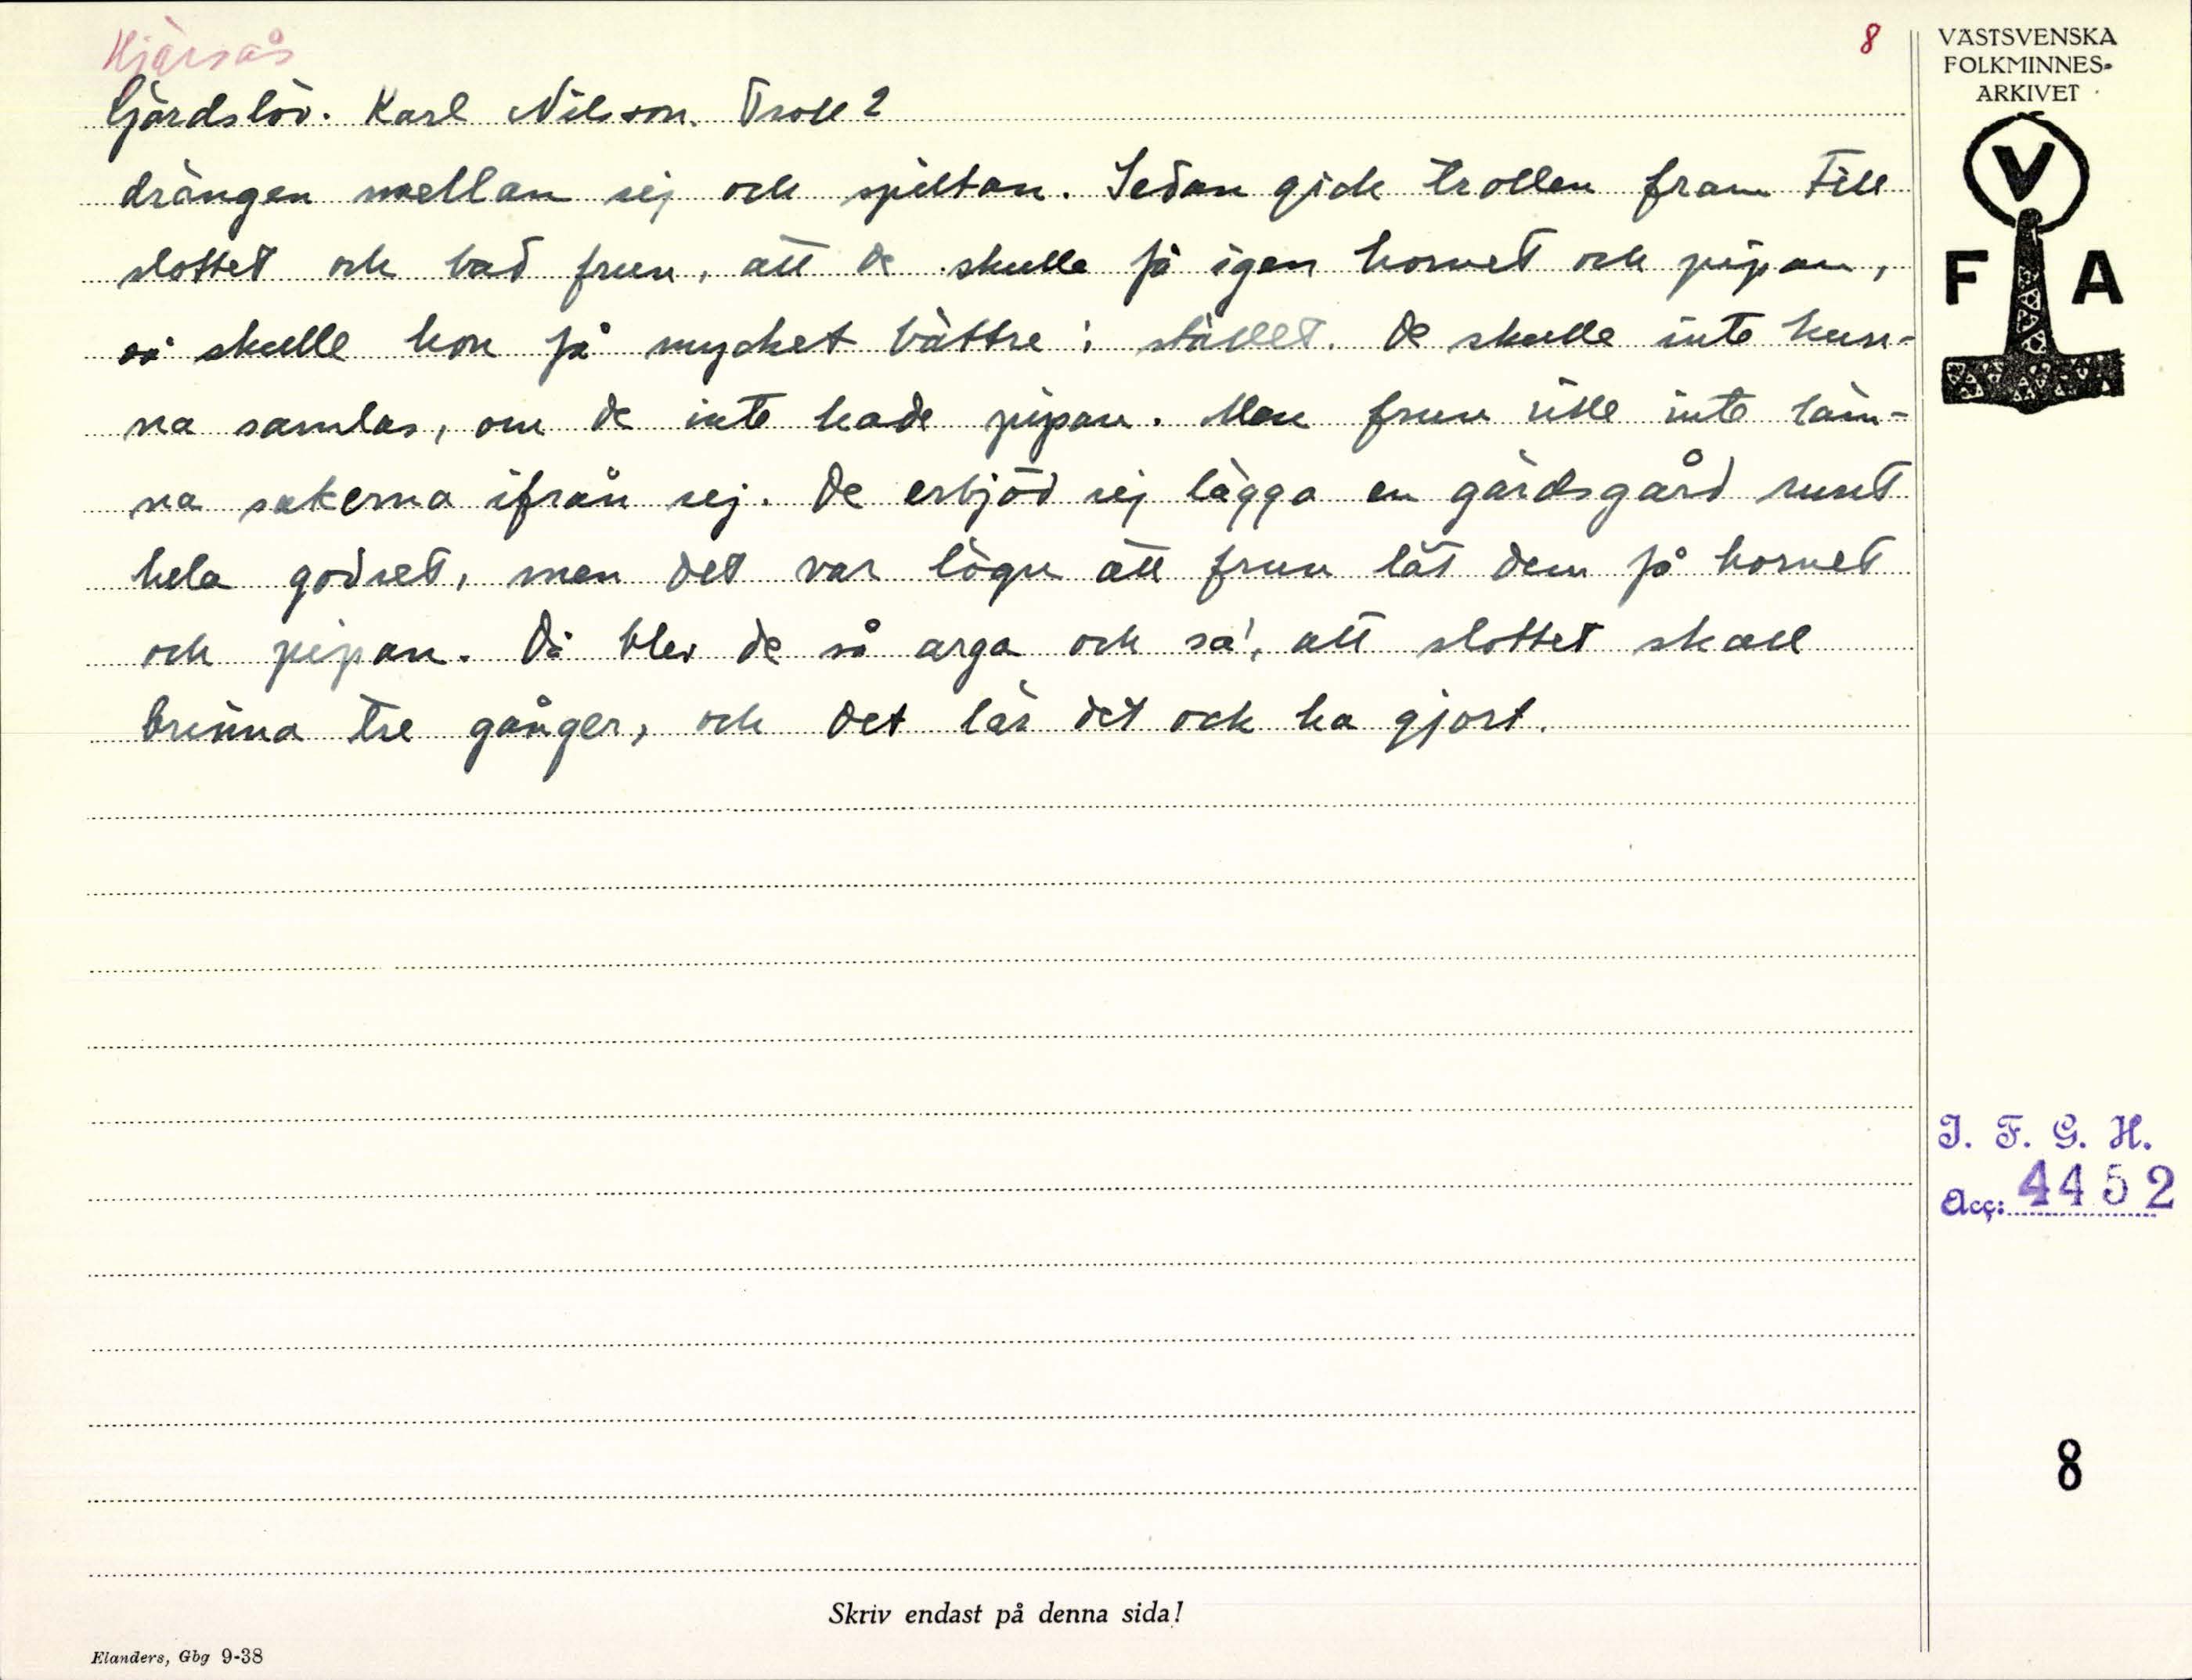 Hjärsås
8
Gärdslöv. Karl Nilsson. Troll 2
drängen mellan sej och spiltan. Sedan gick trollen fram till
slottet och bad frun, att de skulle få igen hornet och pipan,
så skulle hon få mycket bättre i stället. De skulle inte kun-
na samlas, om de inte hade pipan. Men frun ville inte läm-
na sakerna ifrån sej. De erbjöd sej lägga en gärdsgård runt
hela godset, men det var lögn att frun lät dem få hornet
och pipan. Då blev de så arga och sa', att slottet skall
brinna tre gånger, och det lär det ock ha gjort.
VÄSTSVENSKA
FOLKMINNES-
ARKIVET
V
F A
I. F. G. H.
Acc: 4452
8
Skriv endast på denna sida!
Elanders, Gbg 9-38